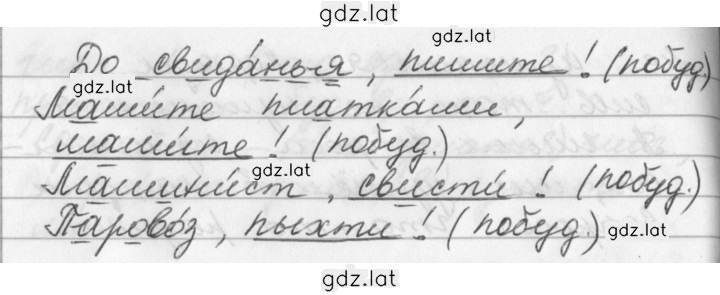 gdz.lat
До свида́нья, пишите! (побуд.)
gdz.lat
Маши́те платка́ми,
маши́те! (побуд.)
gdz.lat
Машини́ст, свисти́! (побуд.)
Парово́з, пыхти! (побуд.)
gdz.lat
gdz.lat